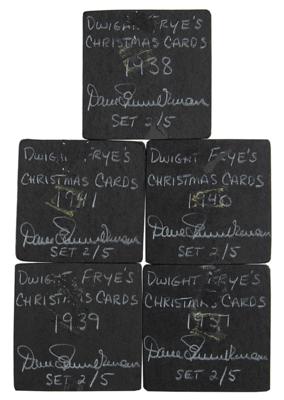 DWIGHT FRYE'S
CHRISTMAS CARDS
1938
SET 2/5
DWIGHT FRYE'S
CHRISTMAS CARDS
1941
SET 2/5
DWIGHT FRYE'S
CHRISTMAS CARDS
1940
SET 2/5
DWIGHT FRYE'S
CHRISTMAS CARDS
1939
SET 2/5
DWIGHT FRYE'S
CHRISTMAS CARDS
1937
SET 2/5